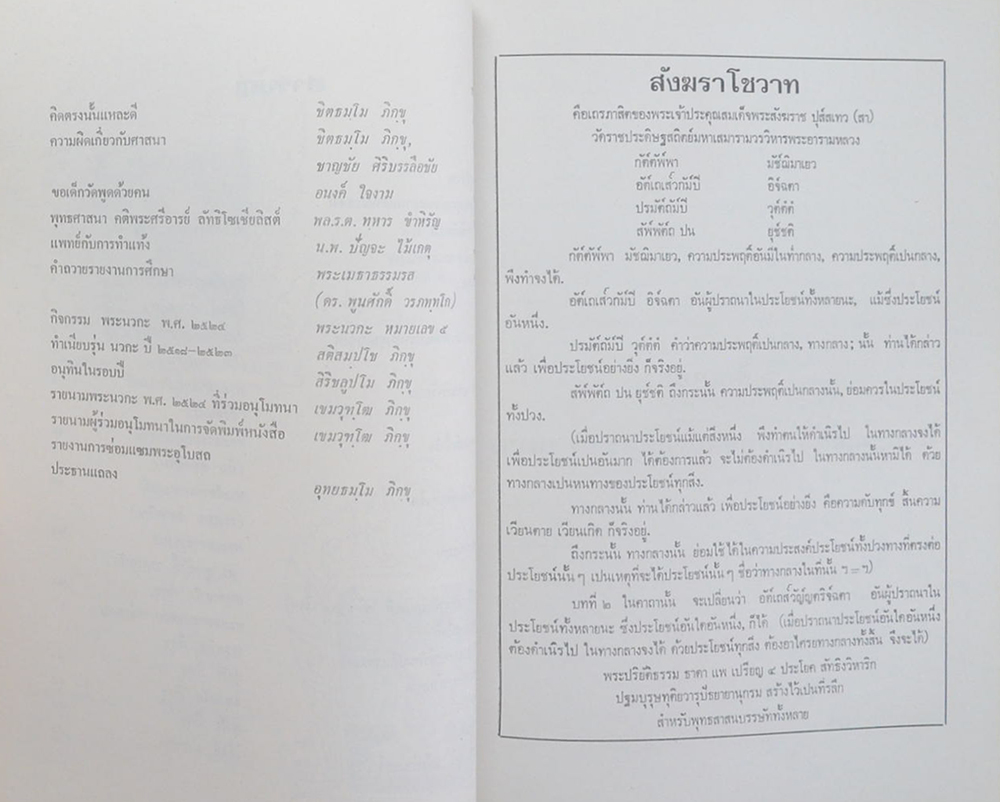 คิดตรงนั้นแหละดี ขิตธมฺโม ภิกฺขุ
ความผิดเกี่ยวกับศาสนา ขิตธมฺโม ภิกฺขุ,
ชาญชัย ศิริบรรลือชัย
ขอเด็กวัดพูดด้วยคน อนงค์ ใจงาม
พุทธศาสนา คติพระศรีอารย์ ลัทธิโซเชียลิสต์ พล.ร.ต. ทหาร ขำหิรัญ
แพทย์กับการทำแท้ง น.พ. ปัญจะ ไม้เกตุ
คำถวายรายงานการศึกษา พระเมธาธรรมรส
(ดร. พูนศักดิ์ วรภทฺทโก)
กิจกรรม พระนวกะ พ.ศ. ๒๕๒๔ พระนวกะ หมายเลข ๕
ทำเนียบรุ่น นวกะ ปี ๒๕๑๘–๒๕๒๓ สติสมฺปโช ภิกฺขุ
อนุทินในรอบปี สิริขลูปโม ภิกฺขุ
รายนามพระนวกะ พ.ศ. ๒๕๒๔ ที่ร่วมอนุโมทนา เขมวุฑฺโฒ ภิกฺขุ
รายนามผู้ร่วมอนุโมทนาในการจัดพิมพ์หนังสือ เขมวุฑฺโฒ ภิกฺขุ
รายงานการซ่อมแซมพระอุโบสถ
ประธานแถลง อุทยธมฺโม ภิกฺขุ
สังฆราโชวาท
คือเถรภาสิตของพระเจ้าประคุณสมเด็จพระสังฆราช ปุสฺสเทว (สา)
วัดราชประดิษฐสถิตย์มหาเสมารามวรวิหารพระอารามหลวง
กัต์ตัพ์พา มัช์ฌิมาเยว
อัต์เถเส๎วกัม์ปี อิจ์ฉตา
ปรมัต์ถัม์ปี วุต์ตํตํ
สัพ์พัต์ถ ปน ยุช์ชติ
กัต์ตัพ์พา มัช์ฌิมาเยว, ความประพฤติ์อันมีในท่ำกลาง, ความประพฤติ์เปนกลาง,
พึงทำจงได้.
อัต์เถเส๎วกัม์ปี อิจ์ฉตา อันผู้ปราถนาในประโยชน์ทั้งหลายนะ, แม้ซึ่งประโยชน์
อันหนึ่ง.
ปรมัต์ถัม์ปี วุต์ตํตํ คำว่าความประพฤติ์เปนกลาง, ทางกลาง; นั้น ท่านได้กล่าว
แล้ว เพื่อประโยชน์อย่างยิ่ง ก็จริงอยู่.
สัพ์พัต์ถ ปน ยุช์ชติ ถึงกระนั้น ความประพฤติ์เปนกลางนั้น, ย่อมควรในประโยชน์
ทั้งปวง.
(เมื่อปราถนาประโยชน์แม้แต่สิ่งหนึ่ง พึงทำตนให้ดำเนิรไป ในทางกลางจงได้
เพื่อประโยชน์เปนอันมาก ได้ต้องการแล้ว จะไม่ต้องดำเนิรไป ในทางกลางนั้นหามิได้ ด้วย
ทางกลางเปนหนทางของประโยชน์ทุกสิ่ง.
ทางกลางนั้น ท่านได้กล่าวแล้ว เพื่อประโยชน์อย่างยิ่ง คือความดับทุกข์ สิ้นความ
เวียนตาย เวียนเกิด ก็จริงอยู่.
ถึงกระนั้น ทางกลางนั้น ย่อมใช้ได้ในความประสงค์ประโยชน์ทั้งปวงทางที่ตรงต่อ
ประโยชน์นั้น ๆ เปนเหตุที่จะได้ประโยชน์นั้น ๆ ชื่อว่าทางกลางในที่นั้น ฯ=ฯ)
บทที่ ๒ ในคาถานั้น จะเปลี่ยนว่า อัต์เถส๎วัญ์ญตริจ์ฉตา อันผู้ปราถนาใน
ประโยชน์ทั้งหลายนะ ซึ่งประโยชน์อันใดอันหนึ่ง, ก็ได้ (เมื่อปราถนาประโยชน์อันใดอันหนึ่ง
ต้องดำเนิรไป ในทางกลางจงได้ ด้วยประโยชน์ทุกสิ่ง ต้องอาไศรยทางกลางทั้งสิ้น จึงจะได้)
พระปริยัติธรรม ธาดา แพ เปรียญ ๔ ประโยค สัทธิงวิหาริก
ปฐมบุรุษทุติยวารุปัธยายานุกรม สร้างไว้เปนที่รลึก
สำหรับพุทธสาสนบรรษัททั้งหลาย